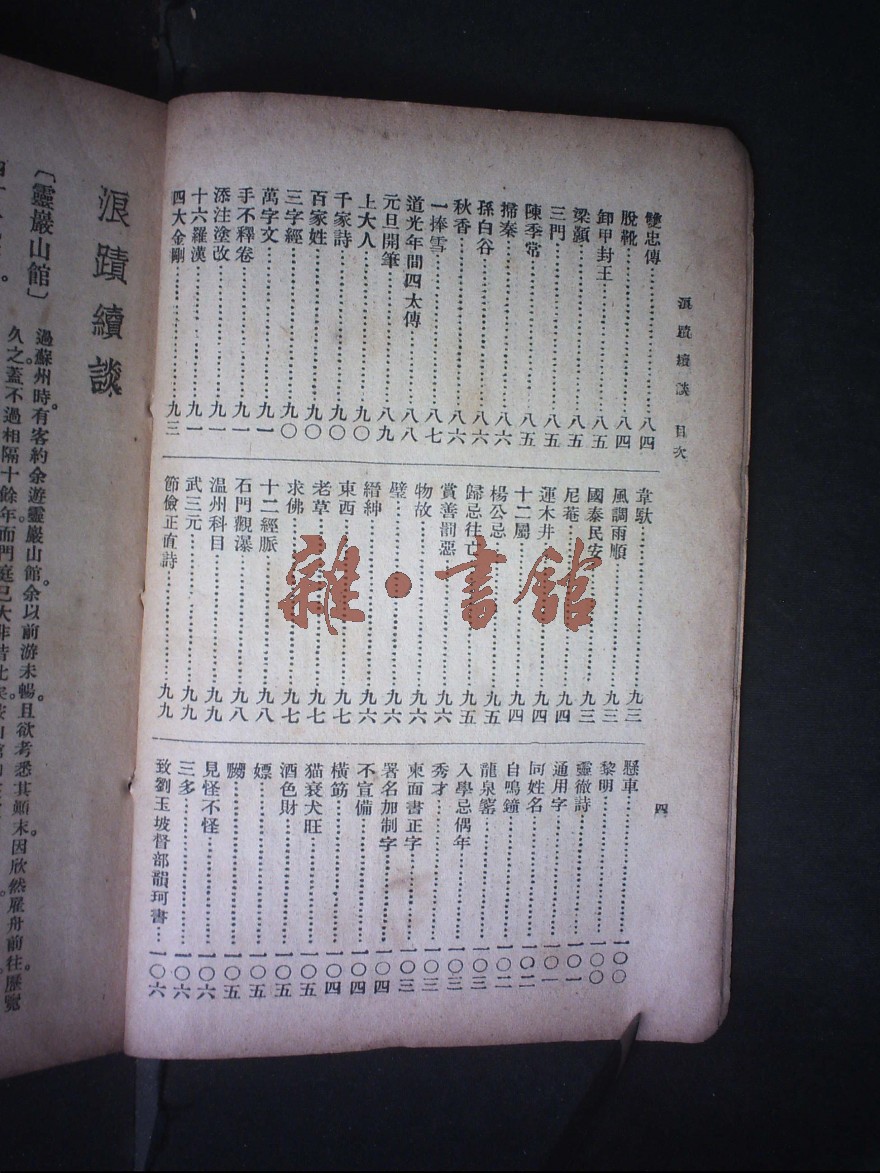 浪蹟續談　目次
四
雙忠傳……八四
脫靴……八四
卸甲封王……八五
梁顥……八五
三門……八五
陳季常……八五
掃秦……八六
孫白谷……八六
秋香……八六
一捧雪……八七
道光年間四太傅……八八
元旦開筆……八九
上大人……九〇
千家詩……九〇
百家姓……九〇
三字經……九〇
萬字文……九一
手不釋卷……九一
添注塗改……九一
十六羅漢……九一
四大金剛……九三
韋馱……九三
風調雨順……九三
國泰民安……九三
尼菴……九四
運木井……九四
十二屬……九四
楊公忌……九五
歸忌往亡……九五
賞善罰惡……九六
物故……九六
璧……九六
縉紳……九六
東西……九七
老草……九七
求佛……九七
十二經脈……九八
石門觀瀑……九八
温州科目……九九
武三元……九九
節儉正直詩……九九
懸車……一〇〇
黎明……一〇〇
靈徹詩……一〇一
通用字……一〇一
同姓名……一〇二
自鳴鐘……一〇二
龍泉窰……一〇三
入學忌偶年……一〇三
秀才……一〇三
東面書正字……一〇三
署名加制字……一〇四
不宣備……一〇四
橫筋……一〇四
猫衰犬旺……一〇五
酒色財……一〇五
嫖……一〇五
嬲……一〇五
見怪不怪……一〇六
三多……一〇六
致劉玉坡督部韻珂書……一〇六
雜·書館
浪蹟續談
〔靈巖山館〕　過蘇州時。有客約余遊靈巖山館。余以前游未暢。且欲考悉其顛末。因欣然雇舟前往。歷覽
久之。蓋不過相隔十餘年。而門庭已大非昔比矣。